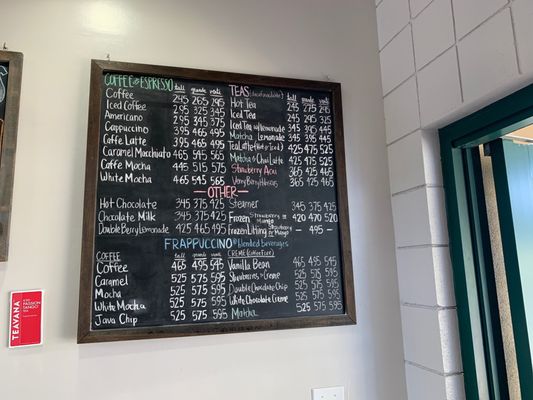 COFFEE & ESPRESSO tall grande venti
Coffee 245 265 295
Iced Coffee 295 325 345
Americano 295 345 375
Cappuccino 395 465 495
Caffe Latte 395 465 495
Caramel Macchiato 465 545 565
Caffe Mocha 445 515 575
White Mocha 465 545 565
TEAS tall grande venti
Hot Tea 245 275 295
Iced Tea 245 295 325
Iced Tea w/ Lemonade 345 395 445
Matcha Lemonade 345 395 445
Tea Latte 425 475 525
Matcha & Chai Latte 425 475 525
Strawberry Acai 365 425 465
Very Berry Hibiscus 365 425 465
-OTHER-
Hot Chocolate 345 375 425
Chocolate Milk 345 375 425
Double Berry Lemonade 425 465 495
Steamer 345 375 425
Frozen Strawberry or Mango 420 470 520
Frozen Strawberry or Mango - 495 -
FRAPPUCCINO blended beverages
COFFEE tall grande venti
Coffee 465 495 545
Caramel 525 575 595
Mocha 525 575 595
White Mocha 525 575 595
Java Chip 525 575 595
CREME
Vanilla Bean 465 495 545
Strawberries & Creme 525 575 595
Double Chocolate Chip 525 575 595
White Chocolate Creme 525 575 595
Matcha 525 575 595
TEAVANA
PASSION TANGO